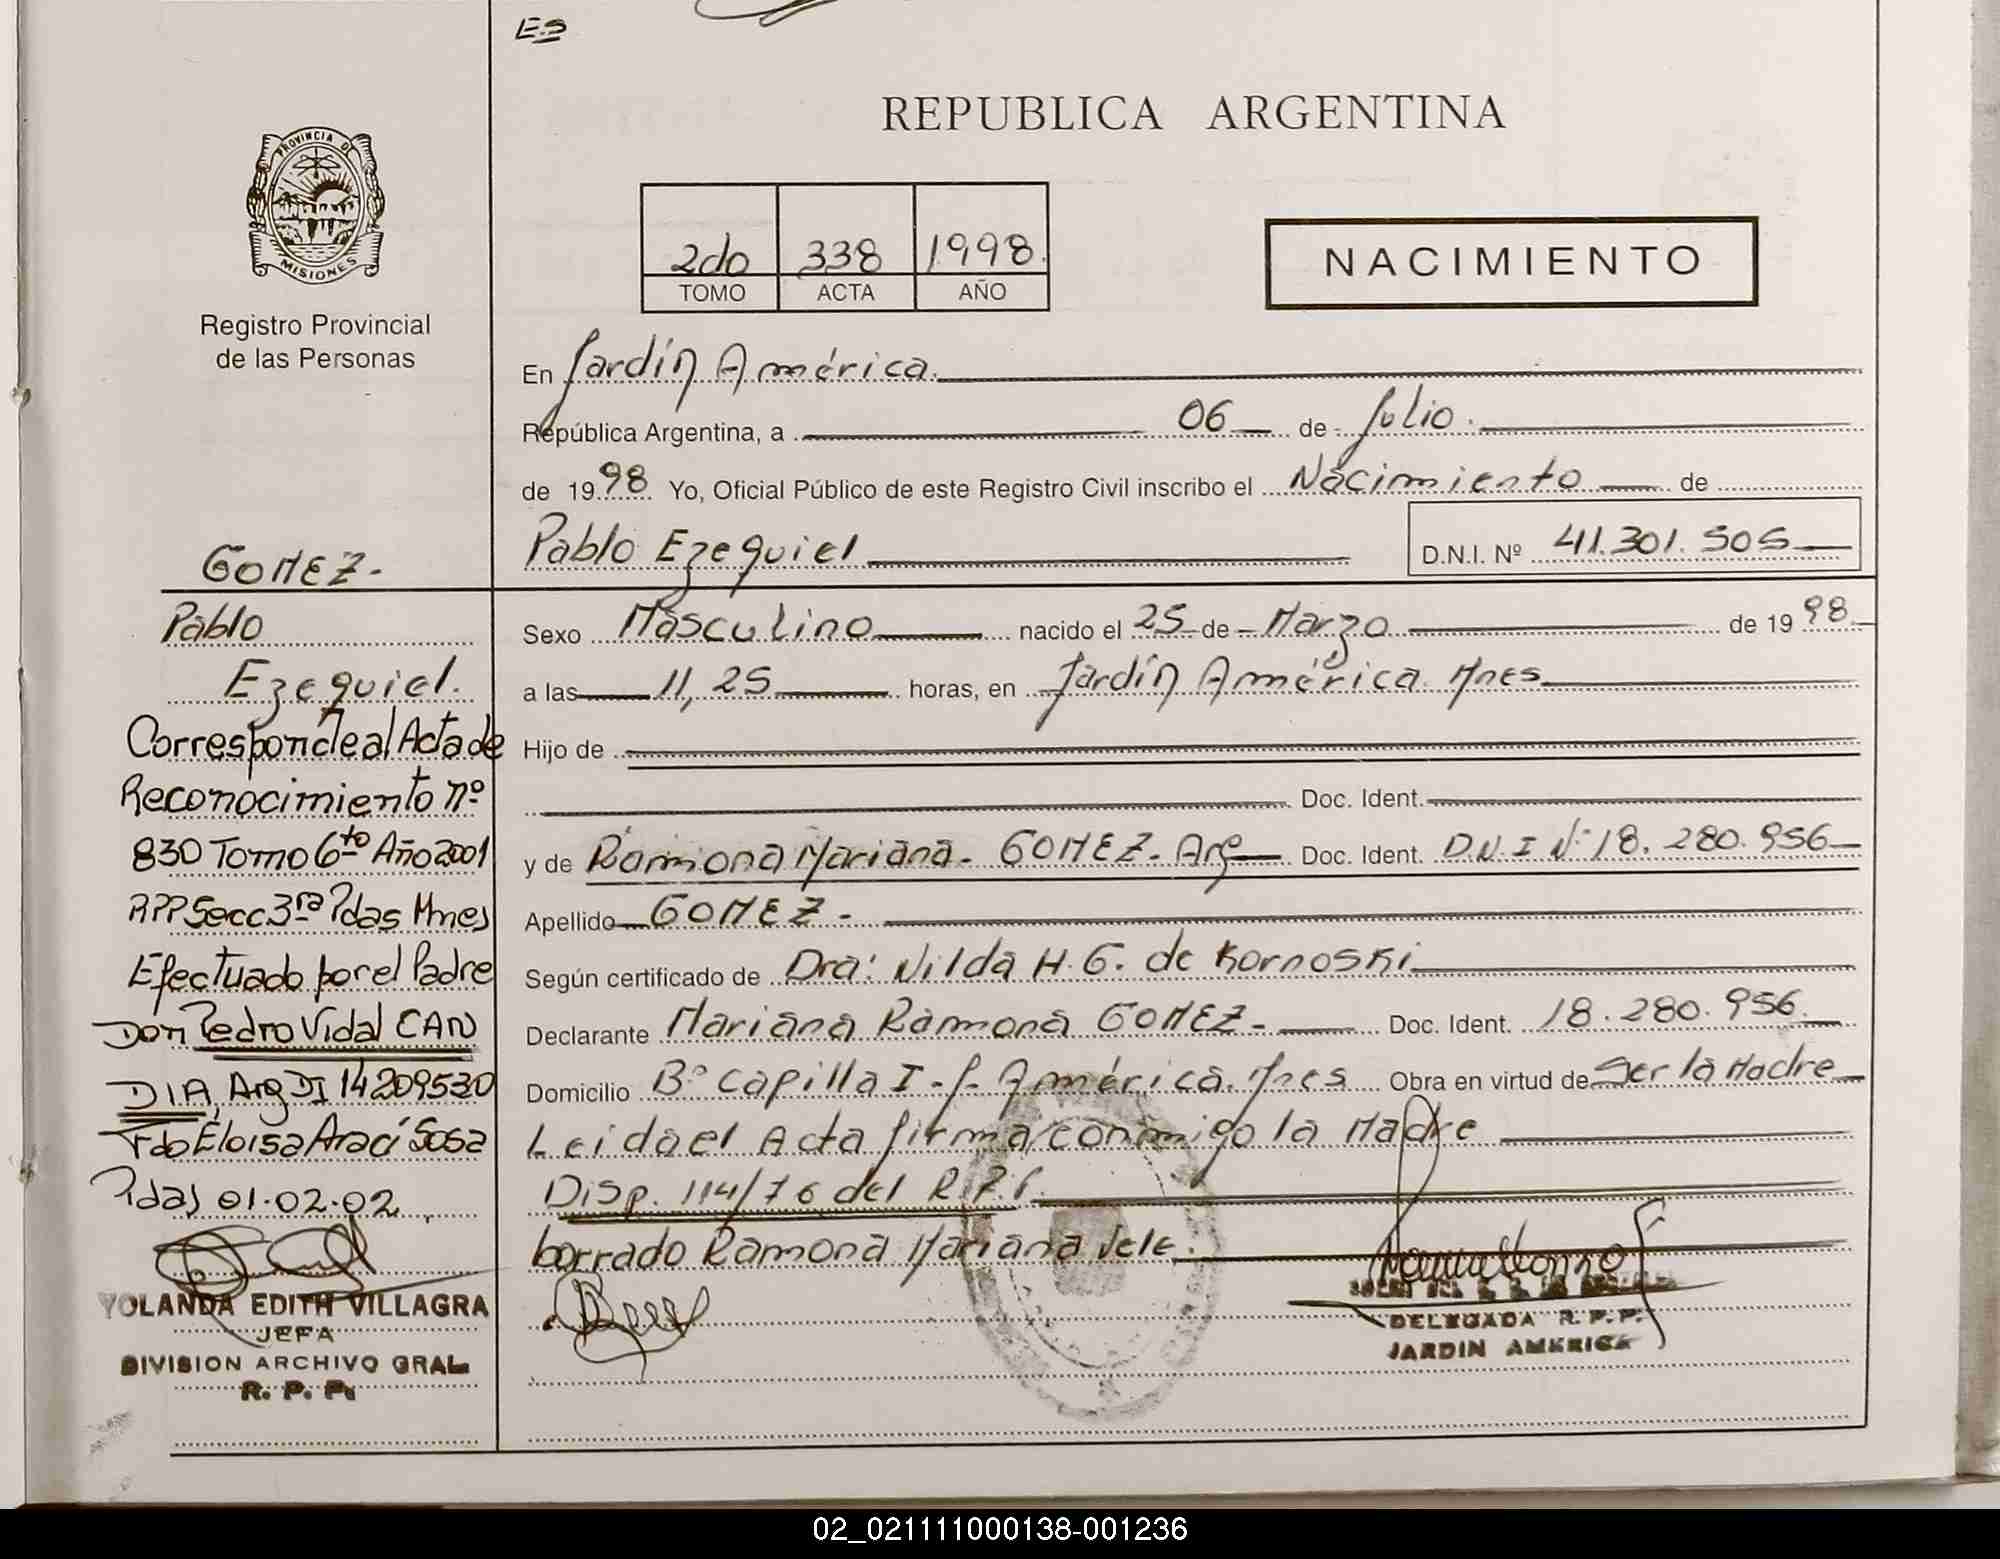 ES
REPUBLICA ARGENTINA
PROVINCIA DE
MISIONES
Registro Provincial
de las Personas
2do 338 1998.
TOMO ACTA AÑO
NACIMIENTO
En Jardín América.
República Argentina, a 06 de Julio.
de 1998 Yo, Oficial Público de este Registro Civil inscribo el Nacimiento de
Pablo Ezequiel D.N.I. Nº 41.301.505
Sexo Masculino nacido el 25 de Marzo de 1998
a las 11,25 horas, en Jardín América Mnes
Hijo de
Doc. Ident.
y de Ramona Mariana - GOMEZ - Arg Doc. Ident. D.N.I Nº 18.280.956
Apellido GOMEZ -
Según certificado de Dra: Nilda H. G. de Kornoski
Declarante Mariana Ramona GOMEZ - Doc. Ident. 18.280.956
Domicilio Bº Capilla I - J. América. Mnes Obra en virtud de Ser la Madre
Leida el Acta firma conmigo la Madre
Disp. 114/76 del R.P.P.
borrado Ramona Mariana Vele.
DELEGADA R.P.P.
JARDIN AMERICA
GOMEZ -
Pablo
Ezequiel.
Corresponde al Acta de
Reconocimiento nº
830 Tomo 6to Año 2001
RPP Secc 3ra Pdas Mnes
Efectuado por el Padre
Don Pedro Vidal CAN
DIA, Arg DI 14209530
Fdo Eloisa Araci Sosa
Pdas 01.02.02
YOLANDA EDITH VILLAGRA
JEFA
DIVISION ARCHIVO GRAL
R. P. P.
02_021111000138-001236